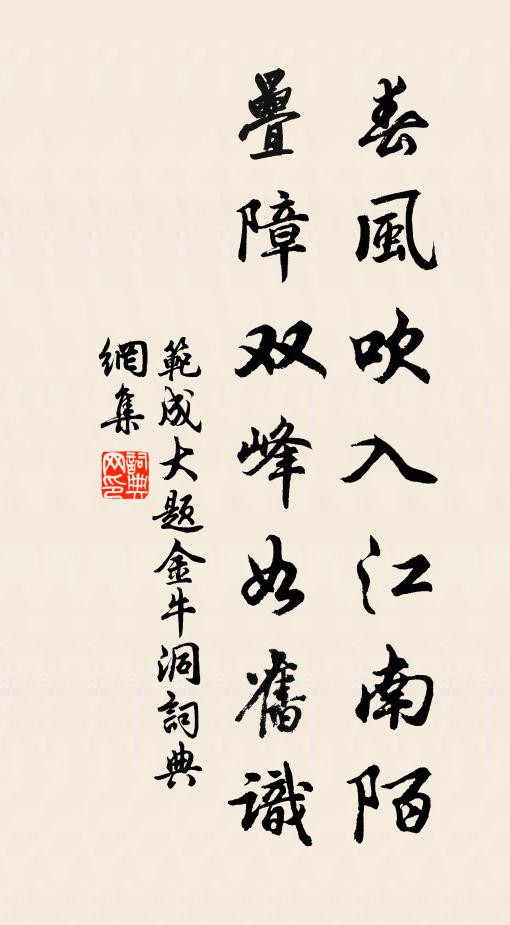 春風吹入江南陌
疊障双峰如舊識
範成大题金牛洞詞典
網集
詞典网印